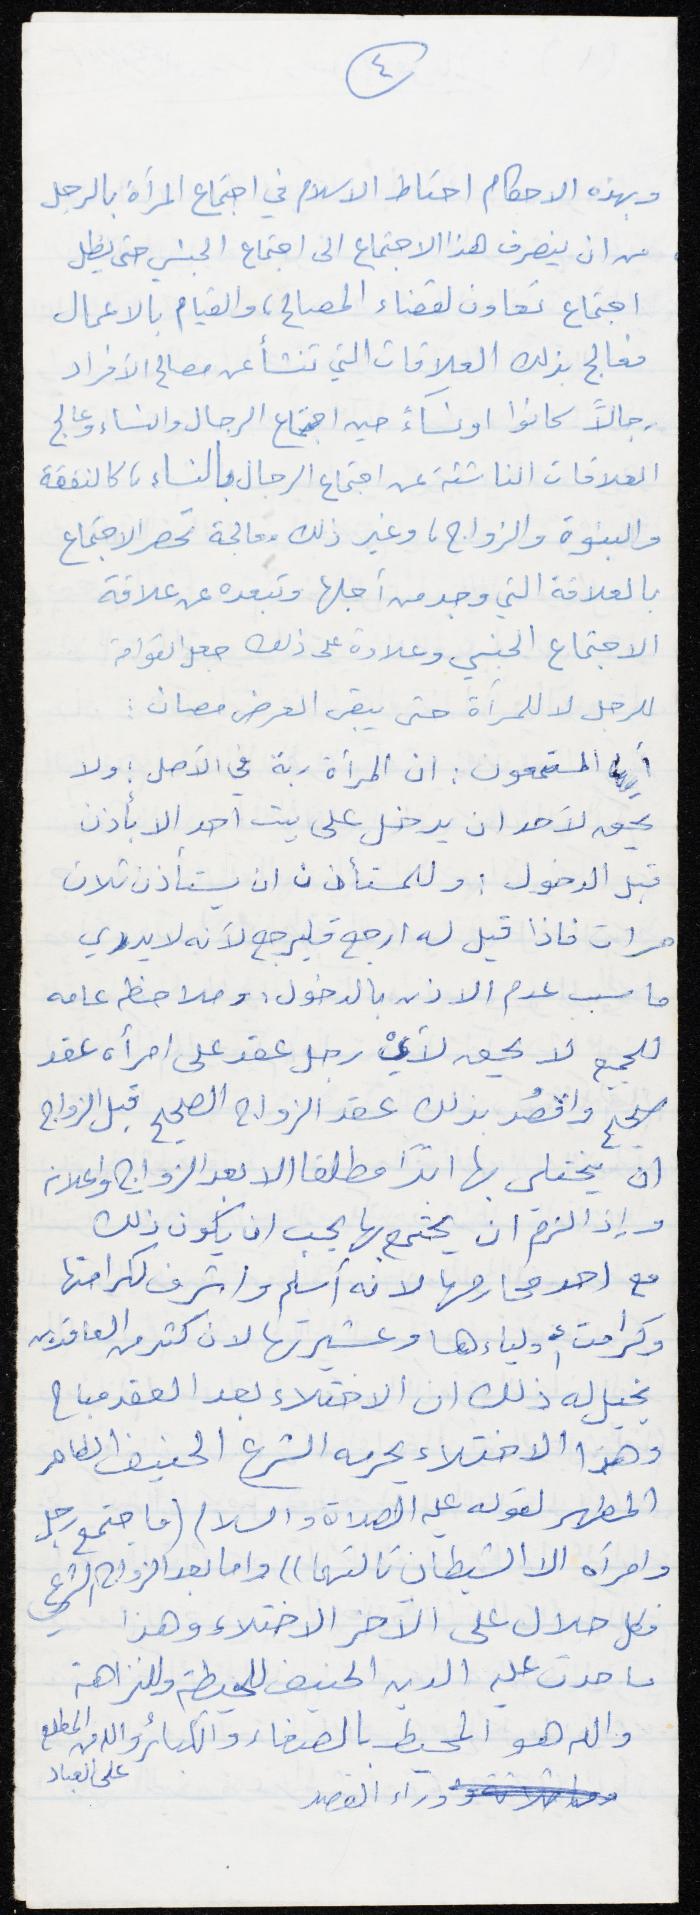 ٤
وبهذه الاحكام احتاط الاسلام في اجتماع المرأة بالرجل
من ان ينصرف هذا الاجتماع الى اجتماع الجنسي حتى يظل
اجتماع تعاون لقضاء المصالح، والقيام بالاعمال
فعالج بذلك العلاقات التي تنشأ عن مصالح الأفراد
رجالاً كانوا او نسآءً حين اجتماع الرجال والنساء وعالج
العلاقات الناشئة عن اجتماع الرجال بالنساء، كالنفقة
والبنوة والزواج، وغير ذلك معالجة تحصر الاجتماع
بالعلاقة التي وجد من أجلها وتبعده عن علاقة
الاجتماع الجنسي وعلاوة على ذلك جعل القوامة
للرجل لا للمرأة حتى يبقى العرض مصان :
أيها المستمعون : ان المرأة ربة في الأصل : ولا
يحق لأحد ان يدخل على بيت احد الا بأذن
قبل الدخول : وللمستأذن ان يستأذن ثلاث
مرات فاذا قيل له ارجع فليرجع لأنه لا يدري
ما سبب عدم الاذن بالدخول : وملاحظه عامه
للجميع لا يحق لأي رجل عقد على امرأه عقد
صحيح واقصُد بذلك عقد الزواج الصحيح قبل الزواج
ان يختلى بها ابدًا مطلقا الا بعد الزواج واعلانه
وإذا لزم ان يجتمع بها يجب ان يكون ذلك
مع احد محارمها لانه أسلم واشرف لكرامتها
وكرامت أولياءها وعشيرتها لان كثر من العاقدين
يخيل له ذلك ان الاختلاء بعد العقد مباح
وهذا الاختلاء يحرمه الشرع الحنيف الطاهر
المطهر لقوله عليه الصلاة والسلام (ما جتمع رجل
وامرأه الا الشيطان ثالثهما)) واما بعد الزواج الشرعي
فكل حلال على الآخر الاختلاء وهذا
ما حدث عليه الدين الحنيف للحيطة وللنزاهة
والله هو المحيط بالصغائر والكبائر والله من المطلع
على العباد
وراء القصد